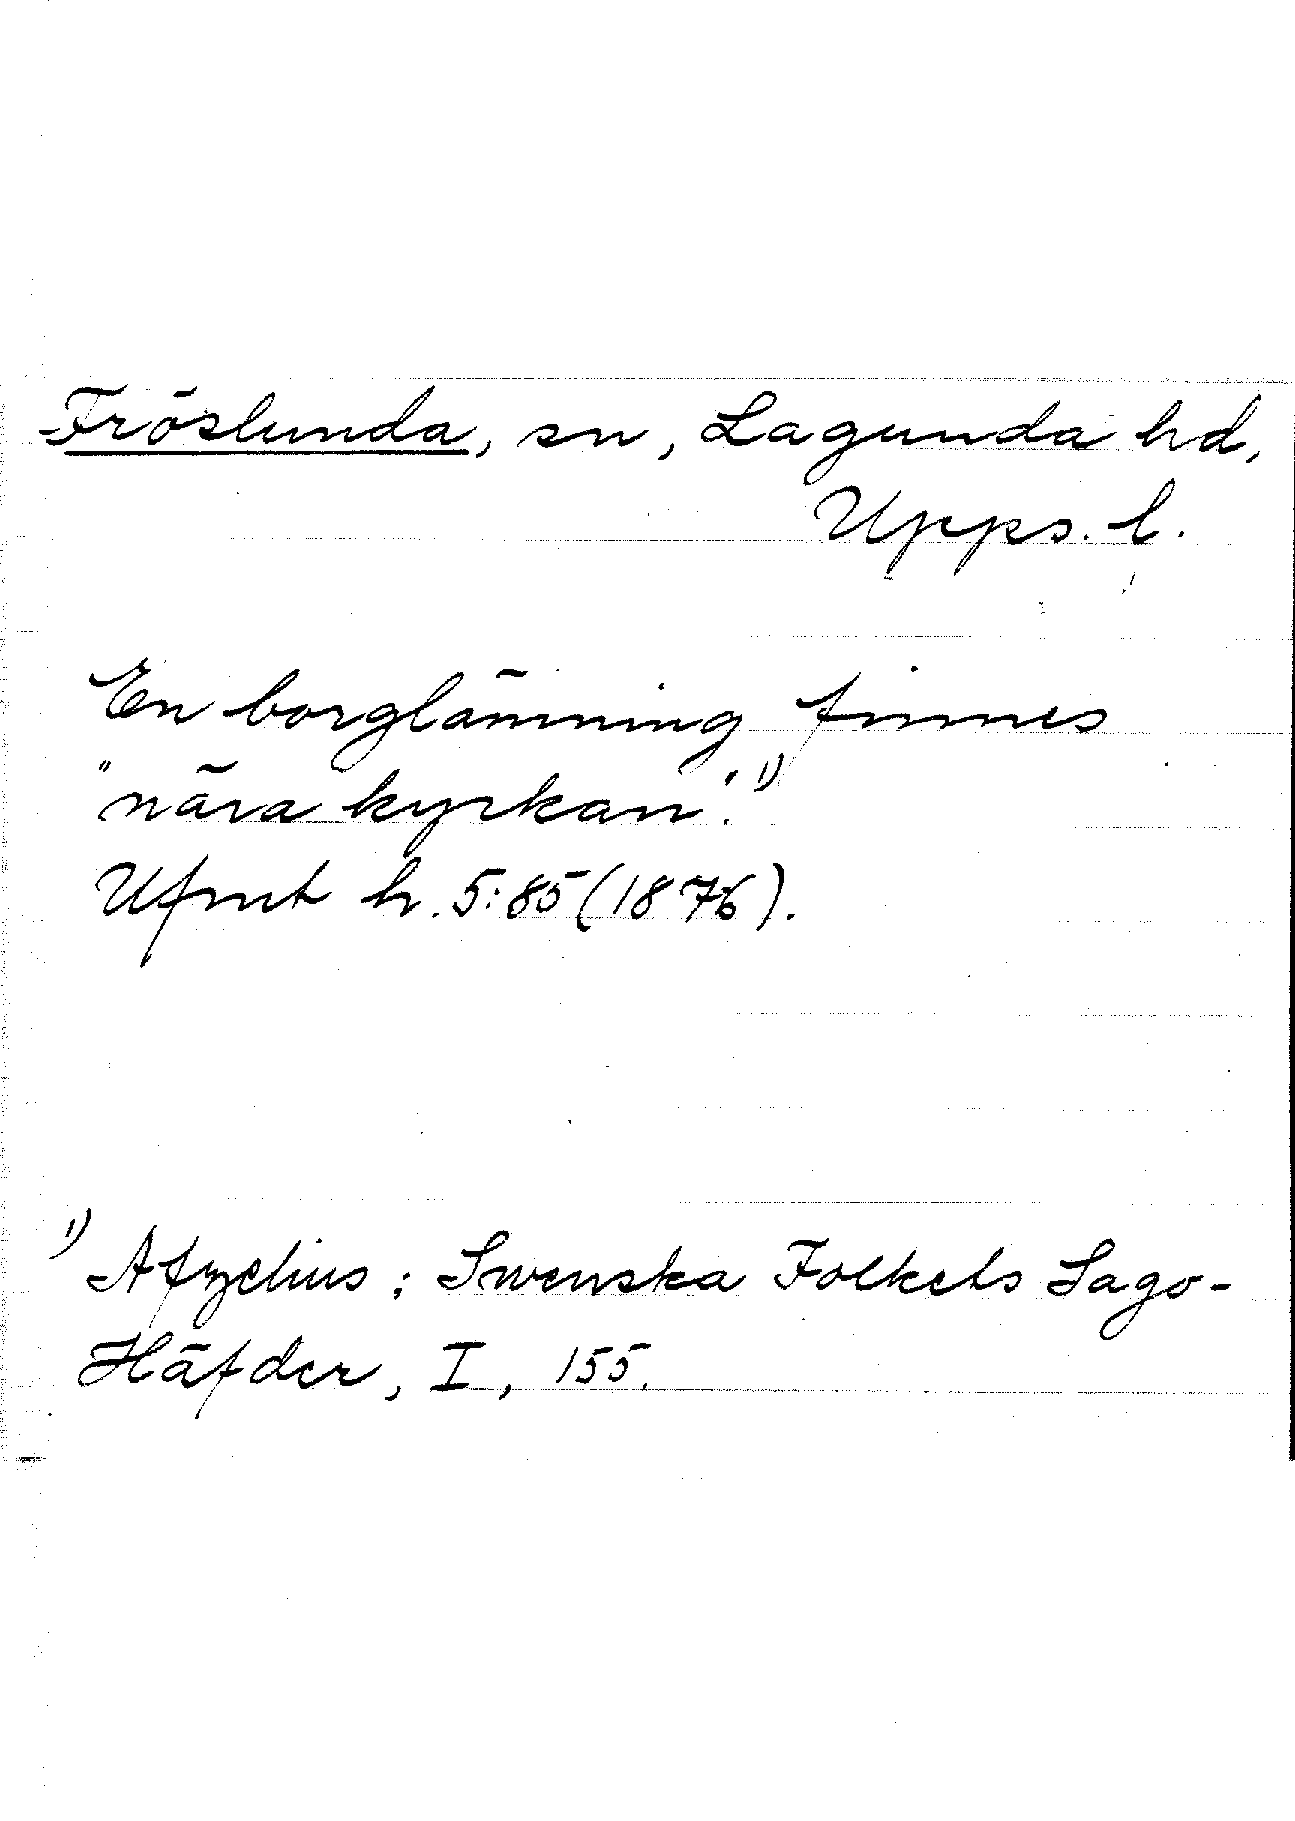 Fröslunda, sn, Lagunda hd,
Upps. l.
En borglämning finnes
"nära kyrkan".¹⁾
Ufmt h. 5:85 (1876).
¹⁾ Afzelius: Swenska Folkets Sago-
Häfder, I, 155.